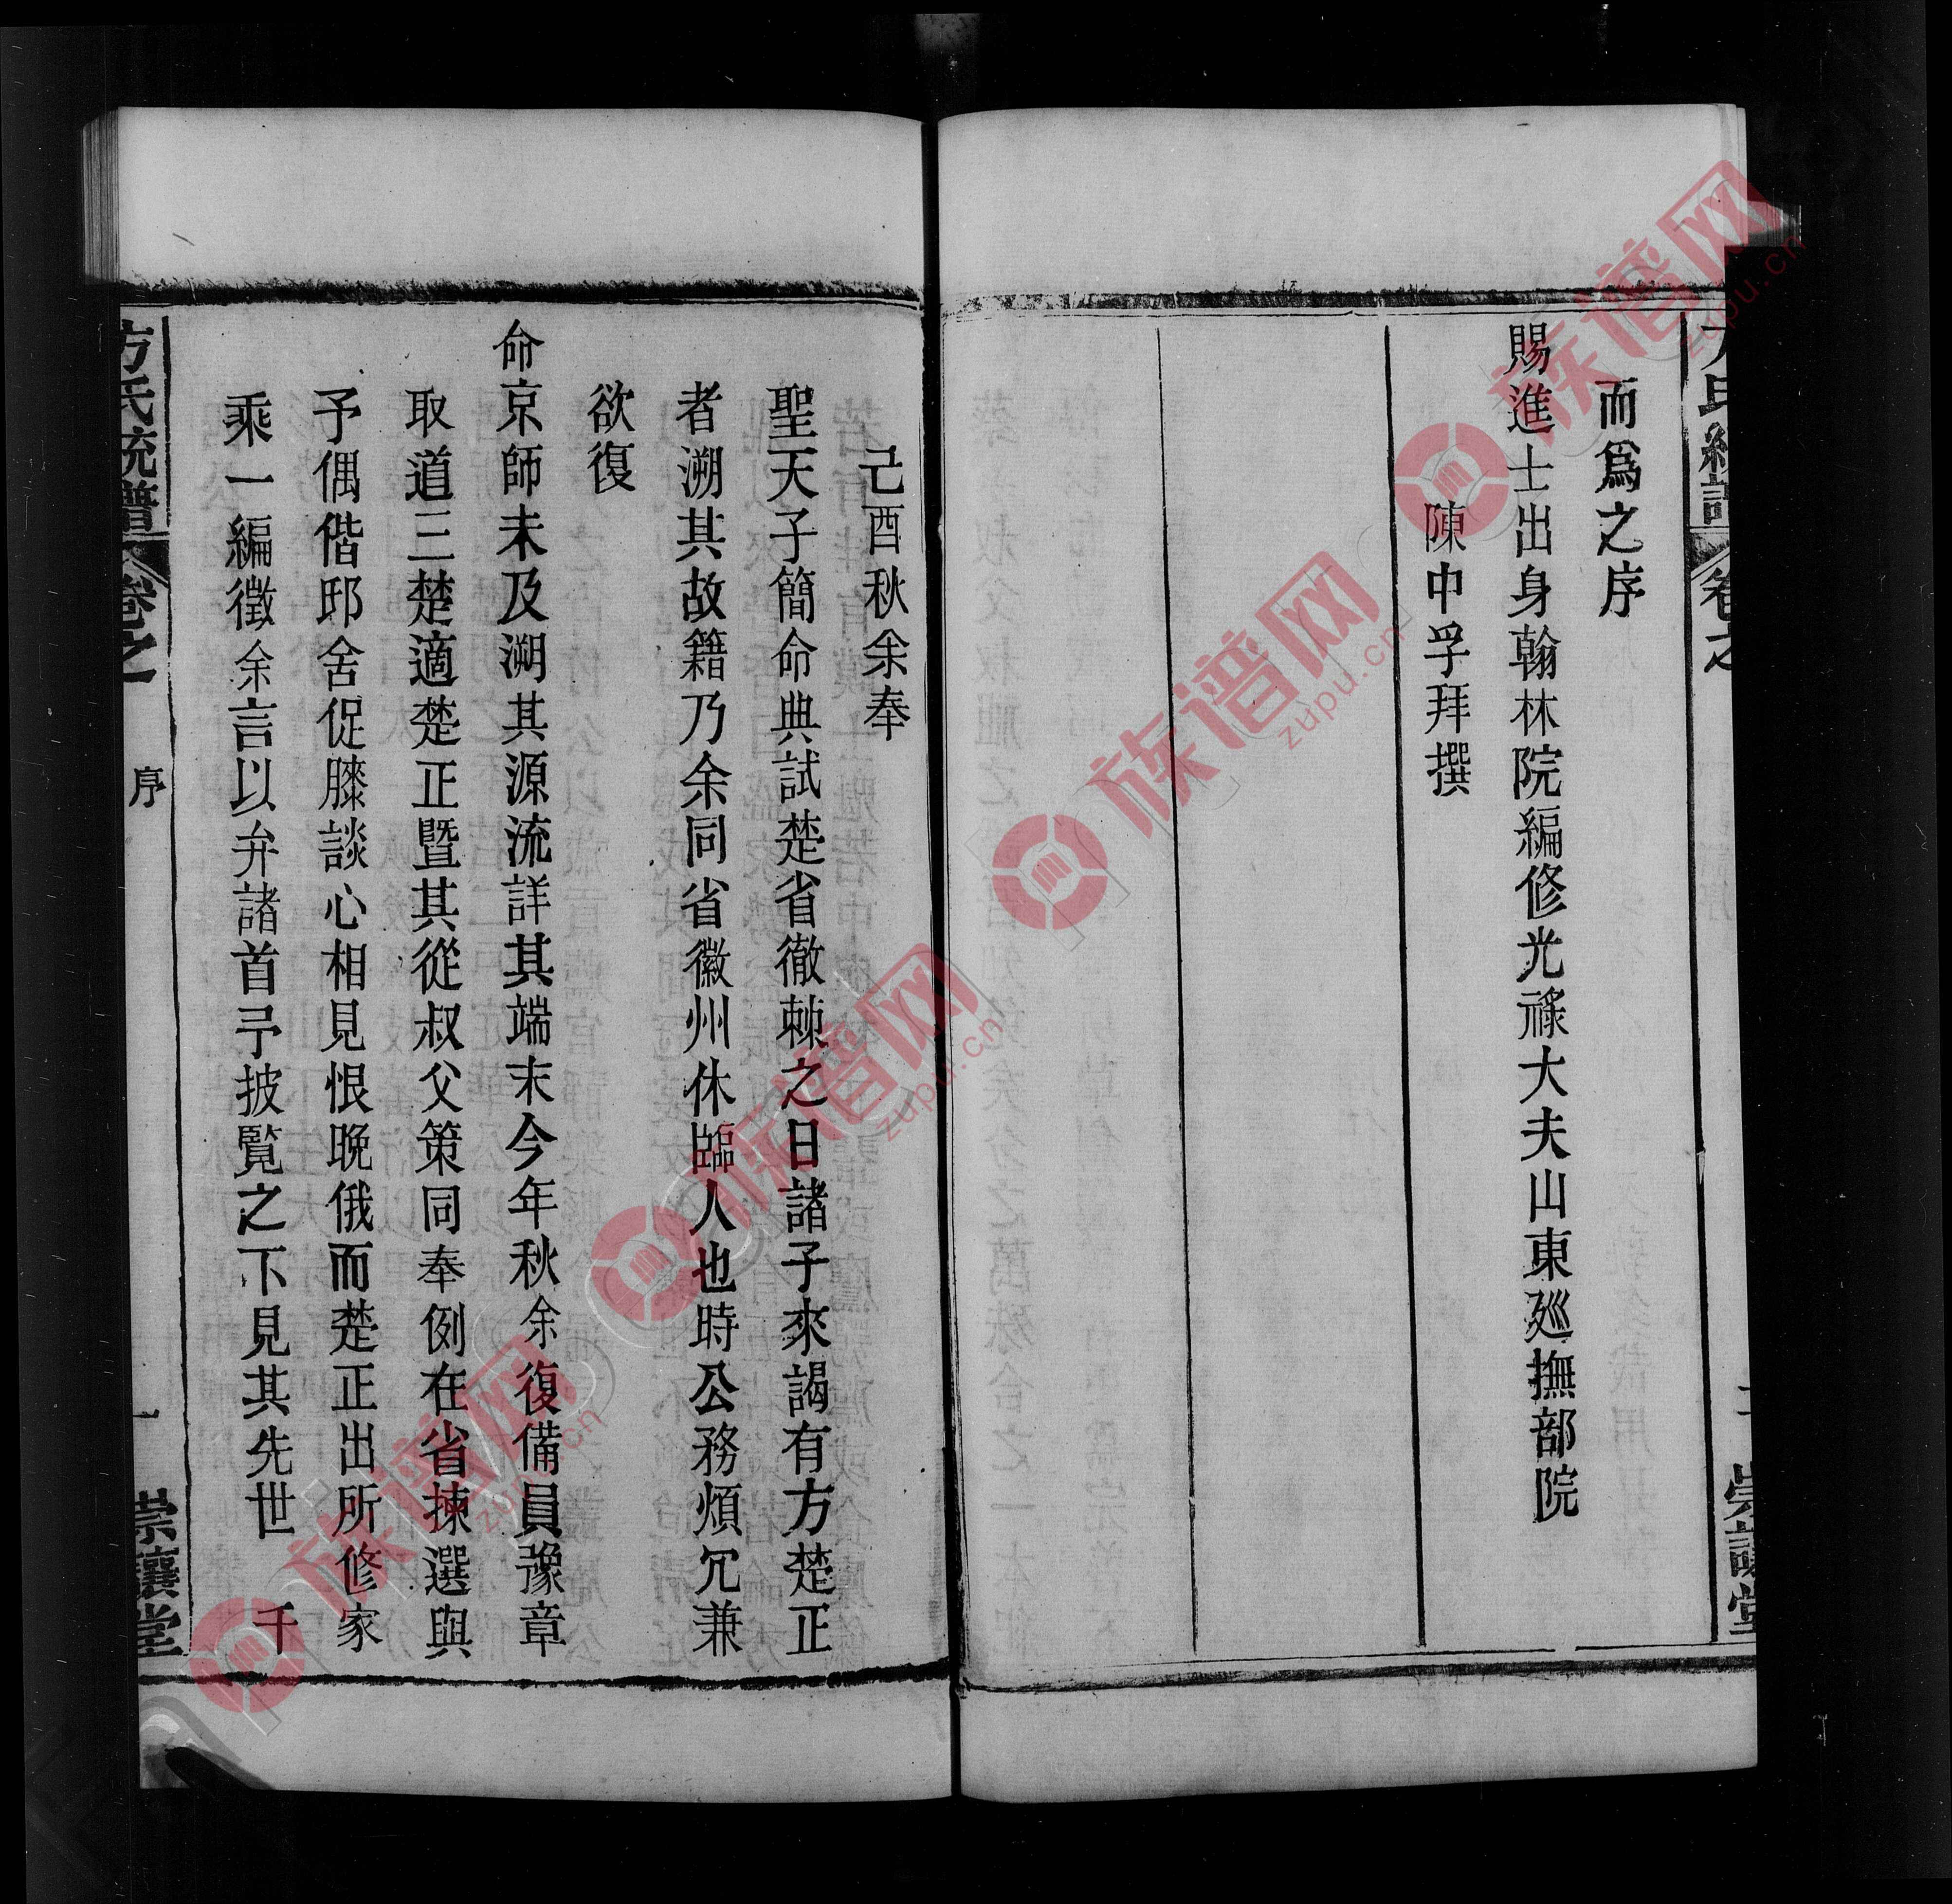 而爲之序
賜進士出身翰林院編修光祿大夫山東廵撫部院
陳中孚拜撰
崇讓堂
己酉秋余奉
聖天子簡命典試楚省徹棘之日諸子來謁有方楚正
者溯其故籍乃余同省徽州休臨人也時公務煩冗兼
欲復
命京師未及溯其源流詳其端末今年秋余復備員豫章
取道三楚適楚正暨其從叔父策同奉例在省揀選與
予偶偕邸舍促膝談心相見恨晚俄而楚正出所修家
乘一編徵余言以弁諸首予披覧之下見其先世千
方氏統譜
卷之一
序
一
崇讓堂
族谱网
zupu.cn
族谱网
zupu.cn
族谱网
zupu.cn
族谱网
zupu.cn